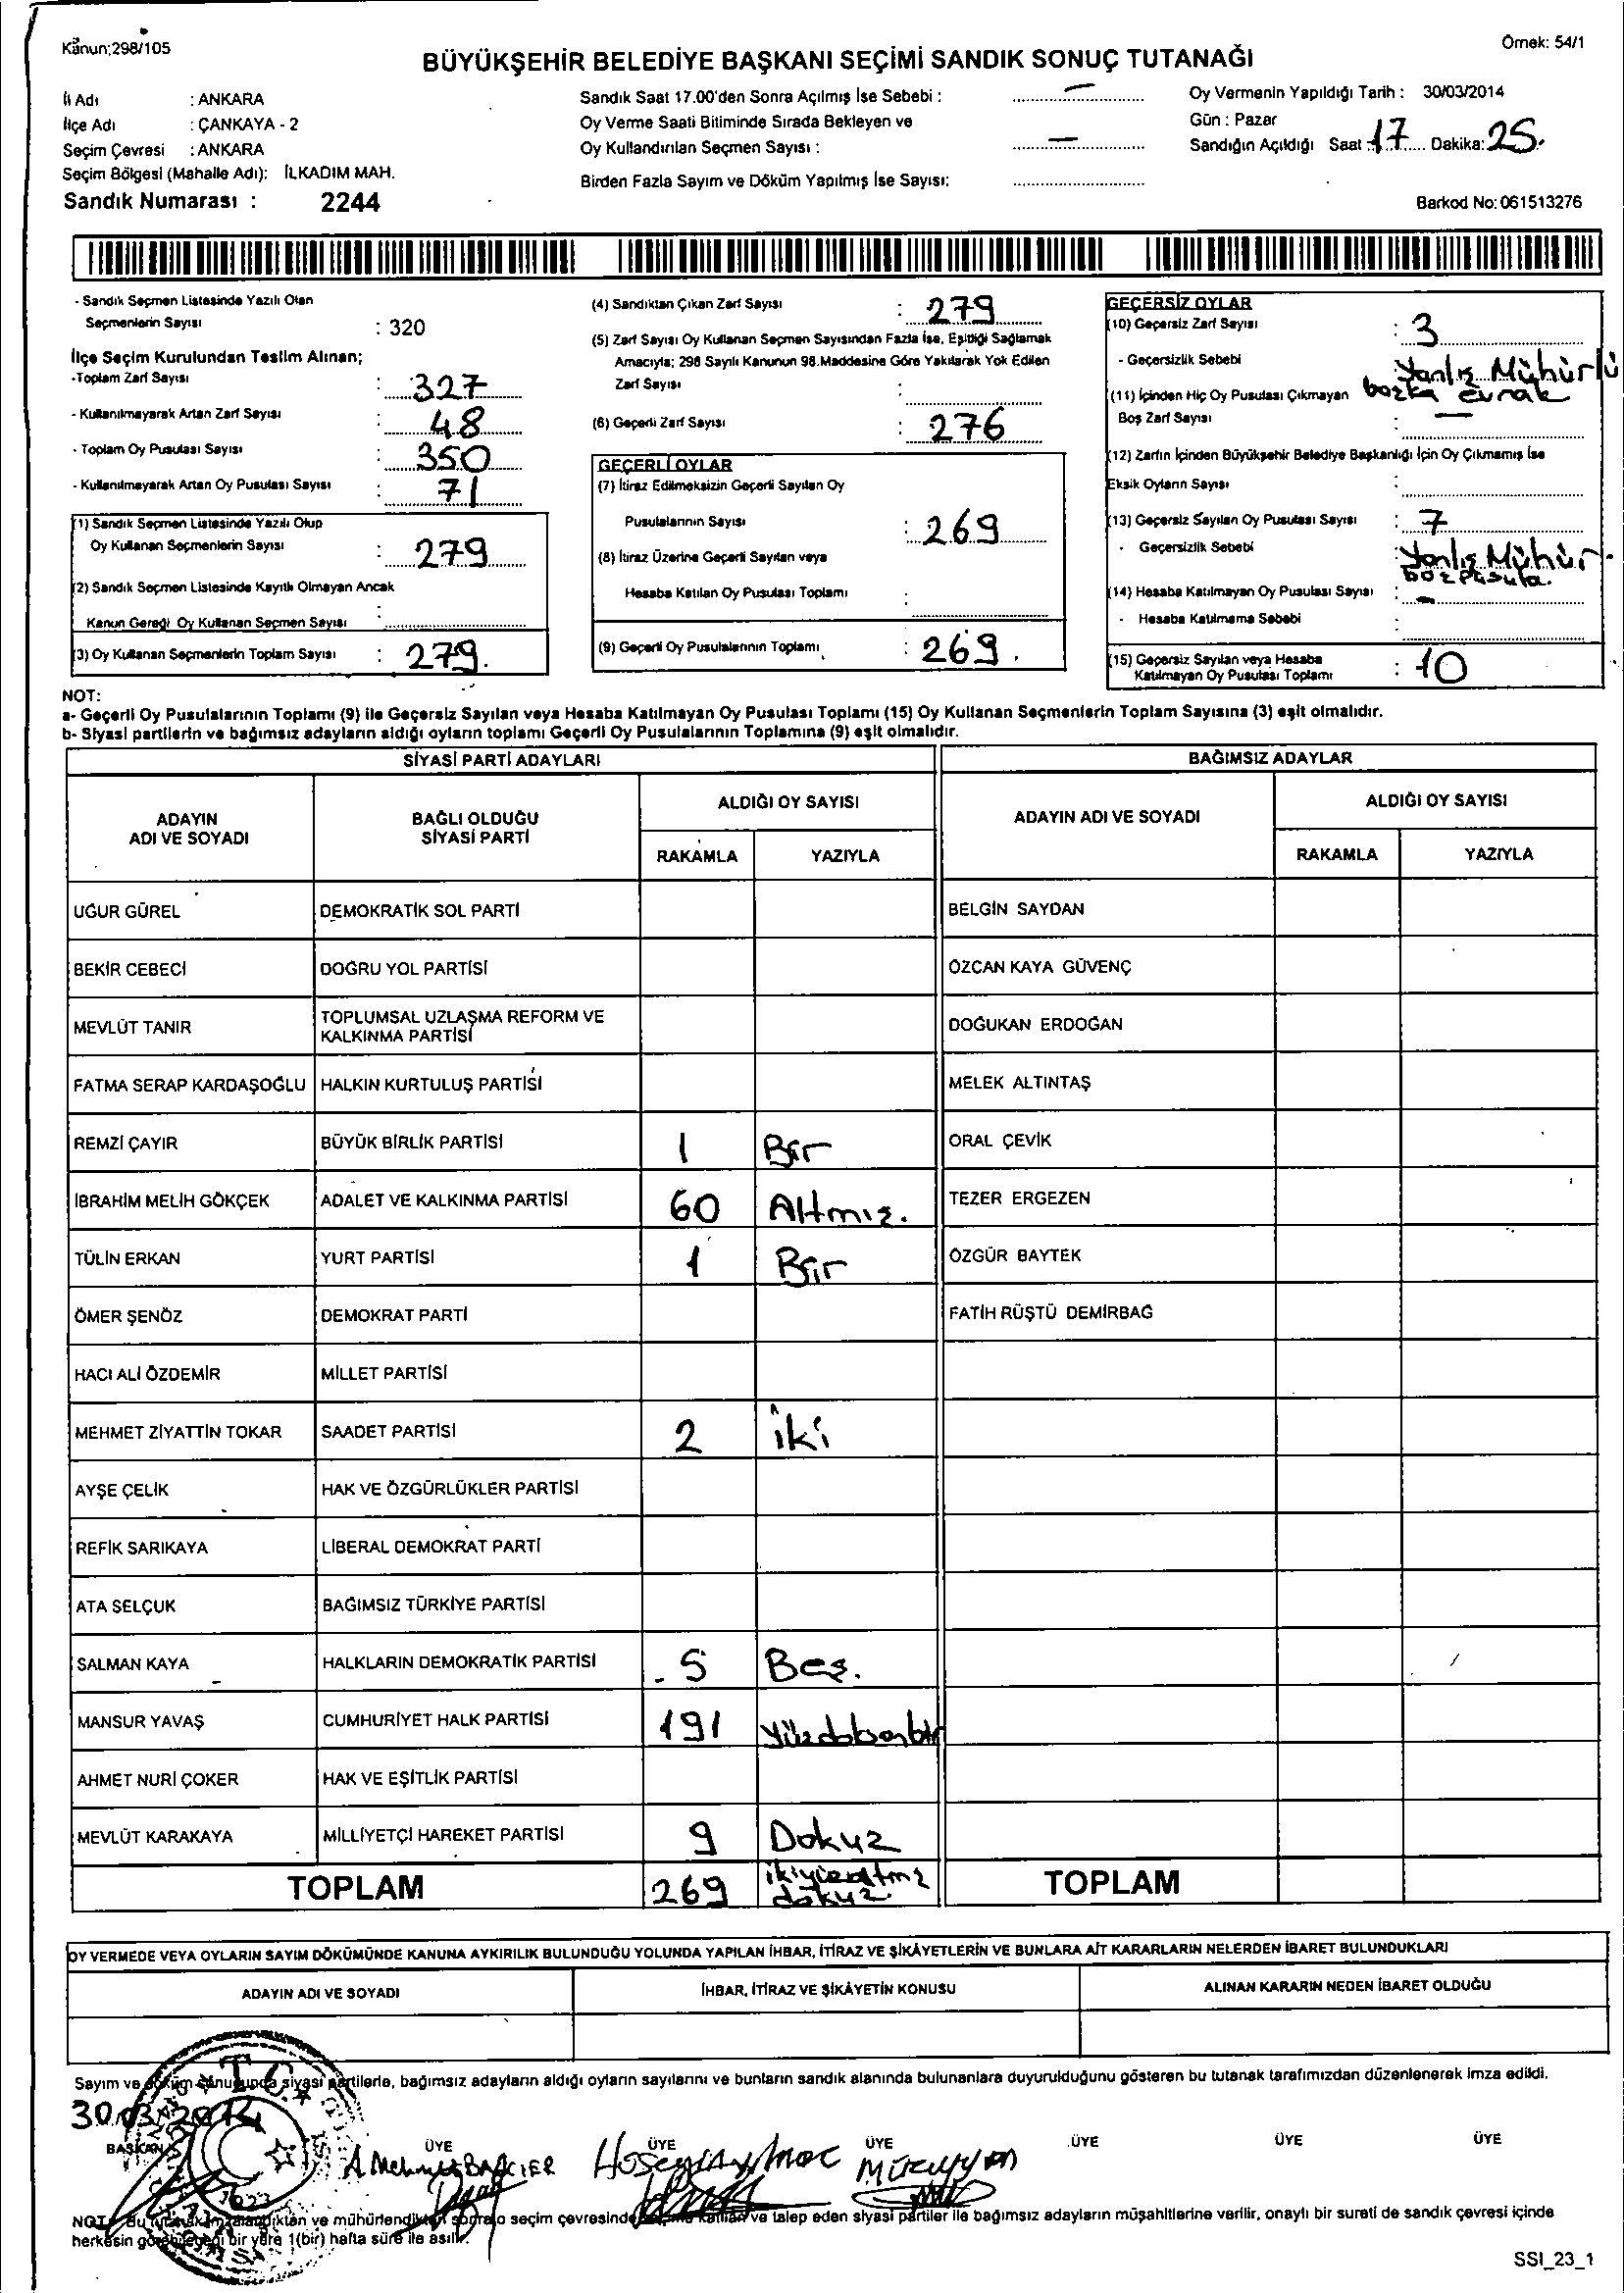 Kanun;298/105
Örnek: 54/1
BÜYÜKŞEHİR BELEDİYE BAŞKANI SEÇİMİ SANDIK SONUÇ TUTANAĞI
İl Adı : ANKARA
İlçe Adı : ÇANKAYA - 2
Seçim Çevresi : ANKARA
Seçim Bölgesi (Mahalle Adı): İLKADIM MAH.
Sandık Numarası : 2244
Sandık Saat 17.00'den Sonra Açılmış İse Sebebi : —
Oy Verme Saati Bitiminde Sırada Bekleyen ve
Oy Kullandırılan Seçmen Sayısı : —
Birden Fazla Sayım ve Döküm Yapılmış İse Sayısı:
Oy Vermenin Yapıldığı Tarih : 30/03/2014
Gün : Pazar
Sandığın Açıldığı Saat : 17 Dakika: 25.
Barkod No: 061513276
- Sandık Seçmen Listesinde Yazılı Olan
Seçmenlerin Sayısı : 320
İlçe Seçim Kurulundan Teslim Alınan;
-Toplam Zarf Sayısı : 327
- Kullanılmayarak Artan Zarf Sayısı : 48
- Toplam Oy Pusulası Sayısı : 350
- Kullanılmayarak Artan Oy Pusulası Sayısı : 71
(1) Sandık Seçmen Listesinde Yazılı Olup
Oy Kullanan Seçmenlerin Sayısı : 279
(2) Sandık Seçmen Listesinde Kayıtlı Olmayan Ancak
Kanun Gereği Oy Kullanan Seçmen Sayısı :
(3) Oy Kullanan Seçmenlerin Toplam Sayısı : 279.
(4) Sandıktan Çıkan Zarf Sayısı : 279
(5) Zarf Sayısı Oy Kullanan Seçmen Sayısından Fazla İse, Eşitliği Sağlamak
Amacıyla; 298 Sayılı Kanunun 98.Maddesine Göre Yakılarak Yok Edilen
Zarf Sayısı :
(6) Geçerli Zarf Sayısı : 276
GEÇERLİ OYLAR
(7) İtiraz Edilmeksizin Geçerli Sayılan Oy
Pusulalarının Sayısı : 269
(8) İtiraz Üzerine Geçerli Sayılan veya
Hesaba Katılan Oy Pusulası Toplamı :
(9) Geçerli Oy Pusulalarının Toplamı : 269.
GEÇERSİZ OYLAR
(10) Geçersiz Zarf Sayısı : 3
- Geçersizlik Sebebi Yanlış Mühürlü
başka evrak
(11) İçinden Hiç Oy Pusulası Çıkmayan
Boş Zarf Sayısı : —
(12) Zarfın İçinden Büyükşehir Belediye Başkanlığı İçin Oy Çıkmamış İse
Eksik Oyların Sayısı :
(13) Geçersiz Sayılan Oy Pusulası Sayısı : 7
- Geçersizlik Sebebi Yanlış Mühür.
boz pusula.
(14) Hesaba Katılmayan Oy Pusulası Sayısı : —
- Hesaba Katılmama Sebebi :
(15) Geçersiz Sayılan veya Hesaba
Katılmayan Oy Pusulası Toplamı : 10
NOT:
a- Geçerli Oy Pusulalarının Toplamı (9) ile Geçersiz Sayılan veya Hesaba Katılmayan Oy Pusulası Toplamı (15) Oy Kullanan Seçmenlerin Toplam Sayısına (3) eşit olmalıdır.
b- Siyasi partilerin ve bağımsız adayların aldığı oyların toplamı Geçerli Oy Pusulalarının Toplamına (9) eşit olmalıdır.
SİYASİ PARTİ ADAYLARI BAĞIMSIZ ADAYLAR
ADAYIN ADI VE SOYADI BAĞLI OLDUĞU SİYASİ PARTİ ALDIĞI OY SAYISI ADAYIN ADI VE SOYADI ALDIĞI OY SAYISI
RAKAMLA YAZIYLA RAKAMLA YAZIYLA
UĞUR GÜREL DEMOKRATİK SOL PARTİ BELGİN SAYDAN
BEKİR CEBECİ DOĞRU YOL PARTİSİ ÖZCAN KAYA GÜVENÇ
MEVLÜT TANIR TOPLUMSAL UZLAŞMA REFORM VE KALKINMA PARTİSİ DOĞUKAN ERDOĞAN
FATMA SERAP KARDAŞOĞLU HALKIN KURTULUŞ PARTİSİ MELEK ALTINTAŞ
REMZİ ÇAYIR BÜYÜK BİRLİK PARTİSİ 1 Bir ORAL ÇEVİK
İBRAHİM MELİH GÖKÇEK ADALET VE KALKINMA PARTİSİ 60 Altmış. TEZER ERGEZEN
TÜLİN ERKAN YURT PARTİSİ 1 Bir ÖZGÜR BAYTEK
ÖMER ŞENÖZ DEMOKRAT PARTİ FATİH RÜŞTÜ DEMİRBAĞ
HACI ALİ ÖZDEMİR MİLLET PARTİSİ
MEHMET ZİYATTİN TOKAR SAADET PARTİSİ 2 iki
AYŞE ÇELİK HAK VE ÖZGÜRLÜKLER PARTİSİ
REFİK SARIKAYA LİBERAL DEMOKRAT PARTİ
ATA SELÇUK BAĞIMSIZ TÜRKİYE PARTİSİ
SALMAN KAYA HALKLARIN DEMOKRATİK PARTİSİ 5 Beş.
MANSUR YAVAŞ CUMHURİYET HALK PARTİSİ 191 Yüzdoksanbir
AHMET NURİ ÇOKER HAK VE EŞİTLİK PARTİSİ
MEVLÜT KARAKAYA MİLLİYETÇİ HAREKET PARTİSİ 9 Dokuz
TOPLAM 269 ikiyüzaltmış dokuz TOPLAM
OY VERMEDE VEYA OYLARIN SAYIM DÖKÜMÜNDE KANUNA AYKIRILIK BULUNDUĞU YOLUNDA YAPILAN İHBAR, İTİRAZ VE ŞİKÂYETLERİN VE BUNLARA AİT KARARLARIN NELERDEN İBARET BULUNDUKLARI
ADAYIN ADI VE SOYADI İHBAR, İTİRAZ VE ŞİKÂYETİN KONUSU ALINAN KARARIN NEDEN İBARET OLDUĞU
Sayım ve döküm sonucunda siyasi partilerle, bağımsız adayların aldığı oyların sayılarını ve bunların sandık alanında bulunanlara duyurulduğunu gösteren bu tutanak tarafımızdan düzenlenerek imza edildi.
30.03.2014
T.C.
BAŞKAN ÜYE ÜYE ÜYE ÜYE ÜYE ÜYE
A Mehmet
NOT: Bu tutanak imzalandıktan ve mühürlendikten sonra o seçim çevresinde seçime katılan ve talep eden siyasi partiler ile bağımsız adayların müşahitlerine verilir, onaylı bir sureti de sandık çevresi içinde
herkesin görebileceği bir yere 1(bir) hafta süre ile asılır.
SSI_23_1